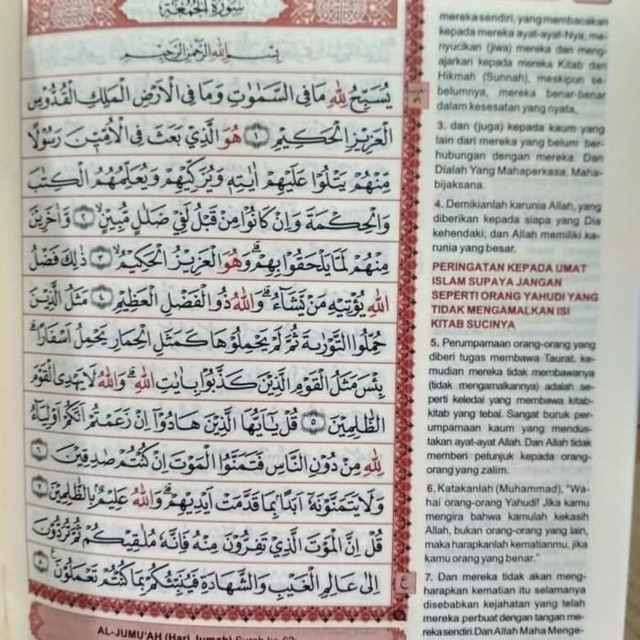 سُورَةُ الْجُمُعَةِ
بِسْمِ اللهِ الرَّحْمٰنِ الرَّحِيْمِ
يُسَبِّحُ لِلّٰهِ مَا فِى السَّمٰوٰتِ وَمَا فِى الْاَرْضِ الْمَلِكِ الْقُدُّوْسِ
الْعَزِيْزِ الْحَكِيْمِ ۝١ هُوَ الَّذِيْ بَعَثَ فِى الْاُمِّيّٖنَ رَسُوْلًا
مِّنْهُمْ يَتْلُوْا عَلَيْهِمْ اٰيٰتِهٖ وَيُزَكِّيْهِمْ وَيُعَلِّمُهُمُ الْكِتٰبَ
وَالْحِكْمَةَ وَاِنْ كَانُوْا مِنْ قَبْلُ لَفِيْ ضَلٰلٍ مُّبِيْنٍۙ ۝٢ وَّاٰخَرِيْنَ
مِنْهُمْ لَمَّا يَلْحَقُوْا بِهِمْۗ وَهُوَ الْعَزِيْزُ الْحَكِيْمُۙ ۝٣ ذٰلِكَ فَضْلُ
اللّٰهِ يُؤْتِيْهِ مَنْ يَّشَاۤءُۗ وَاللّٰهُ ذُو الْفَضْلِ الْعَظِيْمِ ۝٤ مَثَلُ الَّذِيْنَ
حُمِّلُوا التَّوْرٰىةَ ثُمَّ لَمْ يَحْمِلُوْهَا كَمَثَلِ الْحِمَارِ يَحْمِلُ اَسْفَارًاۗ
بِئْسَ مَثَلُ الْقَوْمِ الَّذِيْنَ كَذَّبُوْا بِاٰيٰتِ اللّٰهِۗ وَاللّٰهُ لَا يَهْدِى الْقَوْمَ
الظّٰلِمِيْنَ ۝٥ قُلْ يٰٓاَيُّهَا الَّذِيْنَ هَادُوْٓا اِنْ زَعَمْتُمْ اَنَّكُمْ اَوْلِيَاۤءُ
لِلّٰهِ مِنْ دُوْنِ النَّاسِ فَتَمَنَّوُا الْمَوْتَ اِنْ كُنْتُمْ صٰدِقِيْنَ ۝٦
وَلَا يَتَمَنَّوْنَهٗٓ اَبَدًاۢ بِمَا قَدَّمَتْ اَيْدِيْهِمْۗ وَاللّٰهُ عَلِيْمٌۢ بِالظّٰلِمِيْنَ ۝٧
قُلْ اِنَّ الْمَوْتَ الَّذِيْ تَفِرُّوْنَ مِنْهُ فَاِنَّهٗ مُلٰقِيْكُمْ ثُمَّ تُرَدُّوْنَ
اِلٰى عَالِمِ الْغَيْبِ وَالشَّهَادَةِ فَيُنَبِّئُكُمْ بِمَا كُنْتُمْ تَعْمَلُوْنَ ۝٨
ع
AL-JUMU'AH (Hari Jumah) Surah ke 62
mereka sendiri, yang membacakan
kepada mereka ayat-ayat-Nya, me-
nyucikan (jiwa) mereka dan meng-
ajarkan kepada mereka Kitab dan
Hikmah (Sunnah), meskipun se-
belumnya, mereka benar-benar
dalam kesesatan yang nyata,
3. dan (juga) kepada kaum yang
lain dari mereka yang belum ber-
hubungan dengan mereka. Dan
Dialah Yang Mahaperkasa, Maha-
bijaksana.
4. Demikianlah karunia Allah, yang
diberikan kepada siapa yang Dia
kehendaki; dan Allah memiliki ka-
runia yang besar.
PERINGATAN KEPADA UMAT
ISLAM SUPAYA JANGAN
SEPERTI ORANG YAHUDI YANG
TIDAK MENGAMALKAN ISI
KITAB SUCINYA
5. Perumpamaan orang-orang yang
diberi tugas membawa Taurat, ke-
mudian mereka tidak membawanya
(tidak mengamalkannya) adalah se-
perti keledai yang membawa kitab-
kitab yang tebal. Sangat buruk per-
umpamaan kaum yang mendus-
takan ayat-ayat Allah. Dan Allah tidak
memberi petunjuk kepada orang-
orang yang zalim.
6. Katakanlah (Muhammad), "Wa-
hai orang-orang Yahudi! Jika kamu
mengira bahwa kamulah kekasih
Allah, bukan orang-orang yang lain,
maka harapkanlah kematianmu, jika
kamu orang yang benar."
7. Dan mereka tidak akan meng-
harapkan kematian itu selamanya
disebabkan kejahatan yang telah
mereka perbuat dengan tangan me-
reka sendiri. Dan Allah Maha Menge-